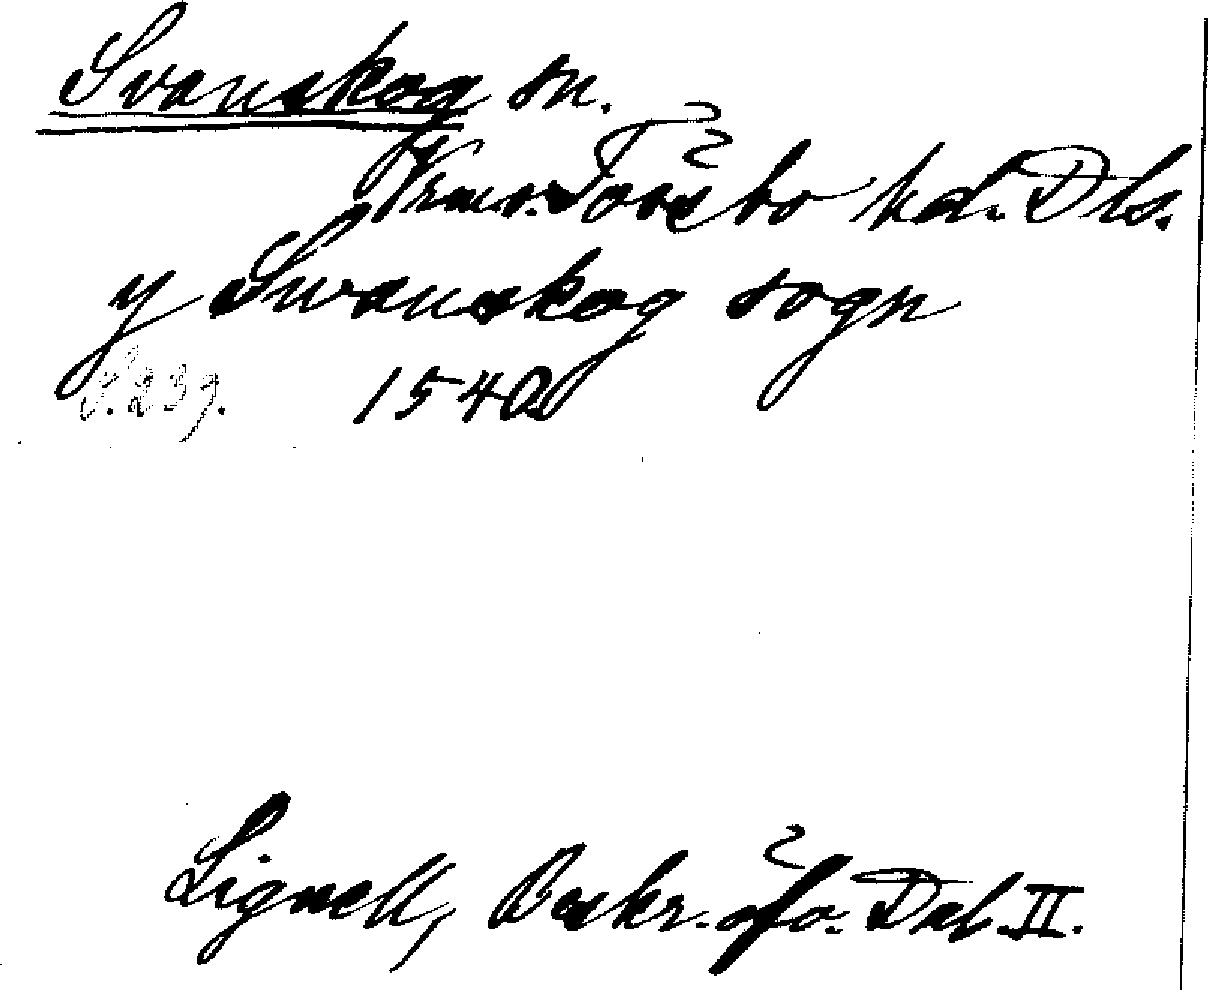 Svanskog sn.
Vrml. Tössbo hd. Dls.
y Swanskog sogn
S. 239. 1540
Lignell, Beskr. öfv. Dal. II.